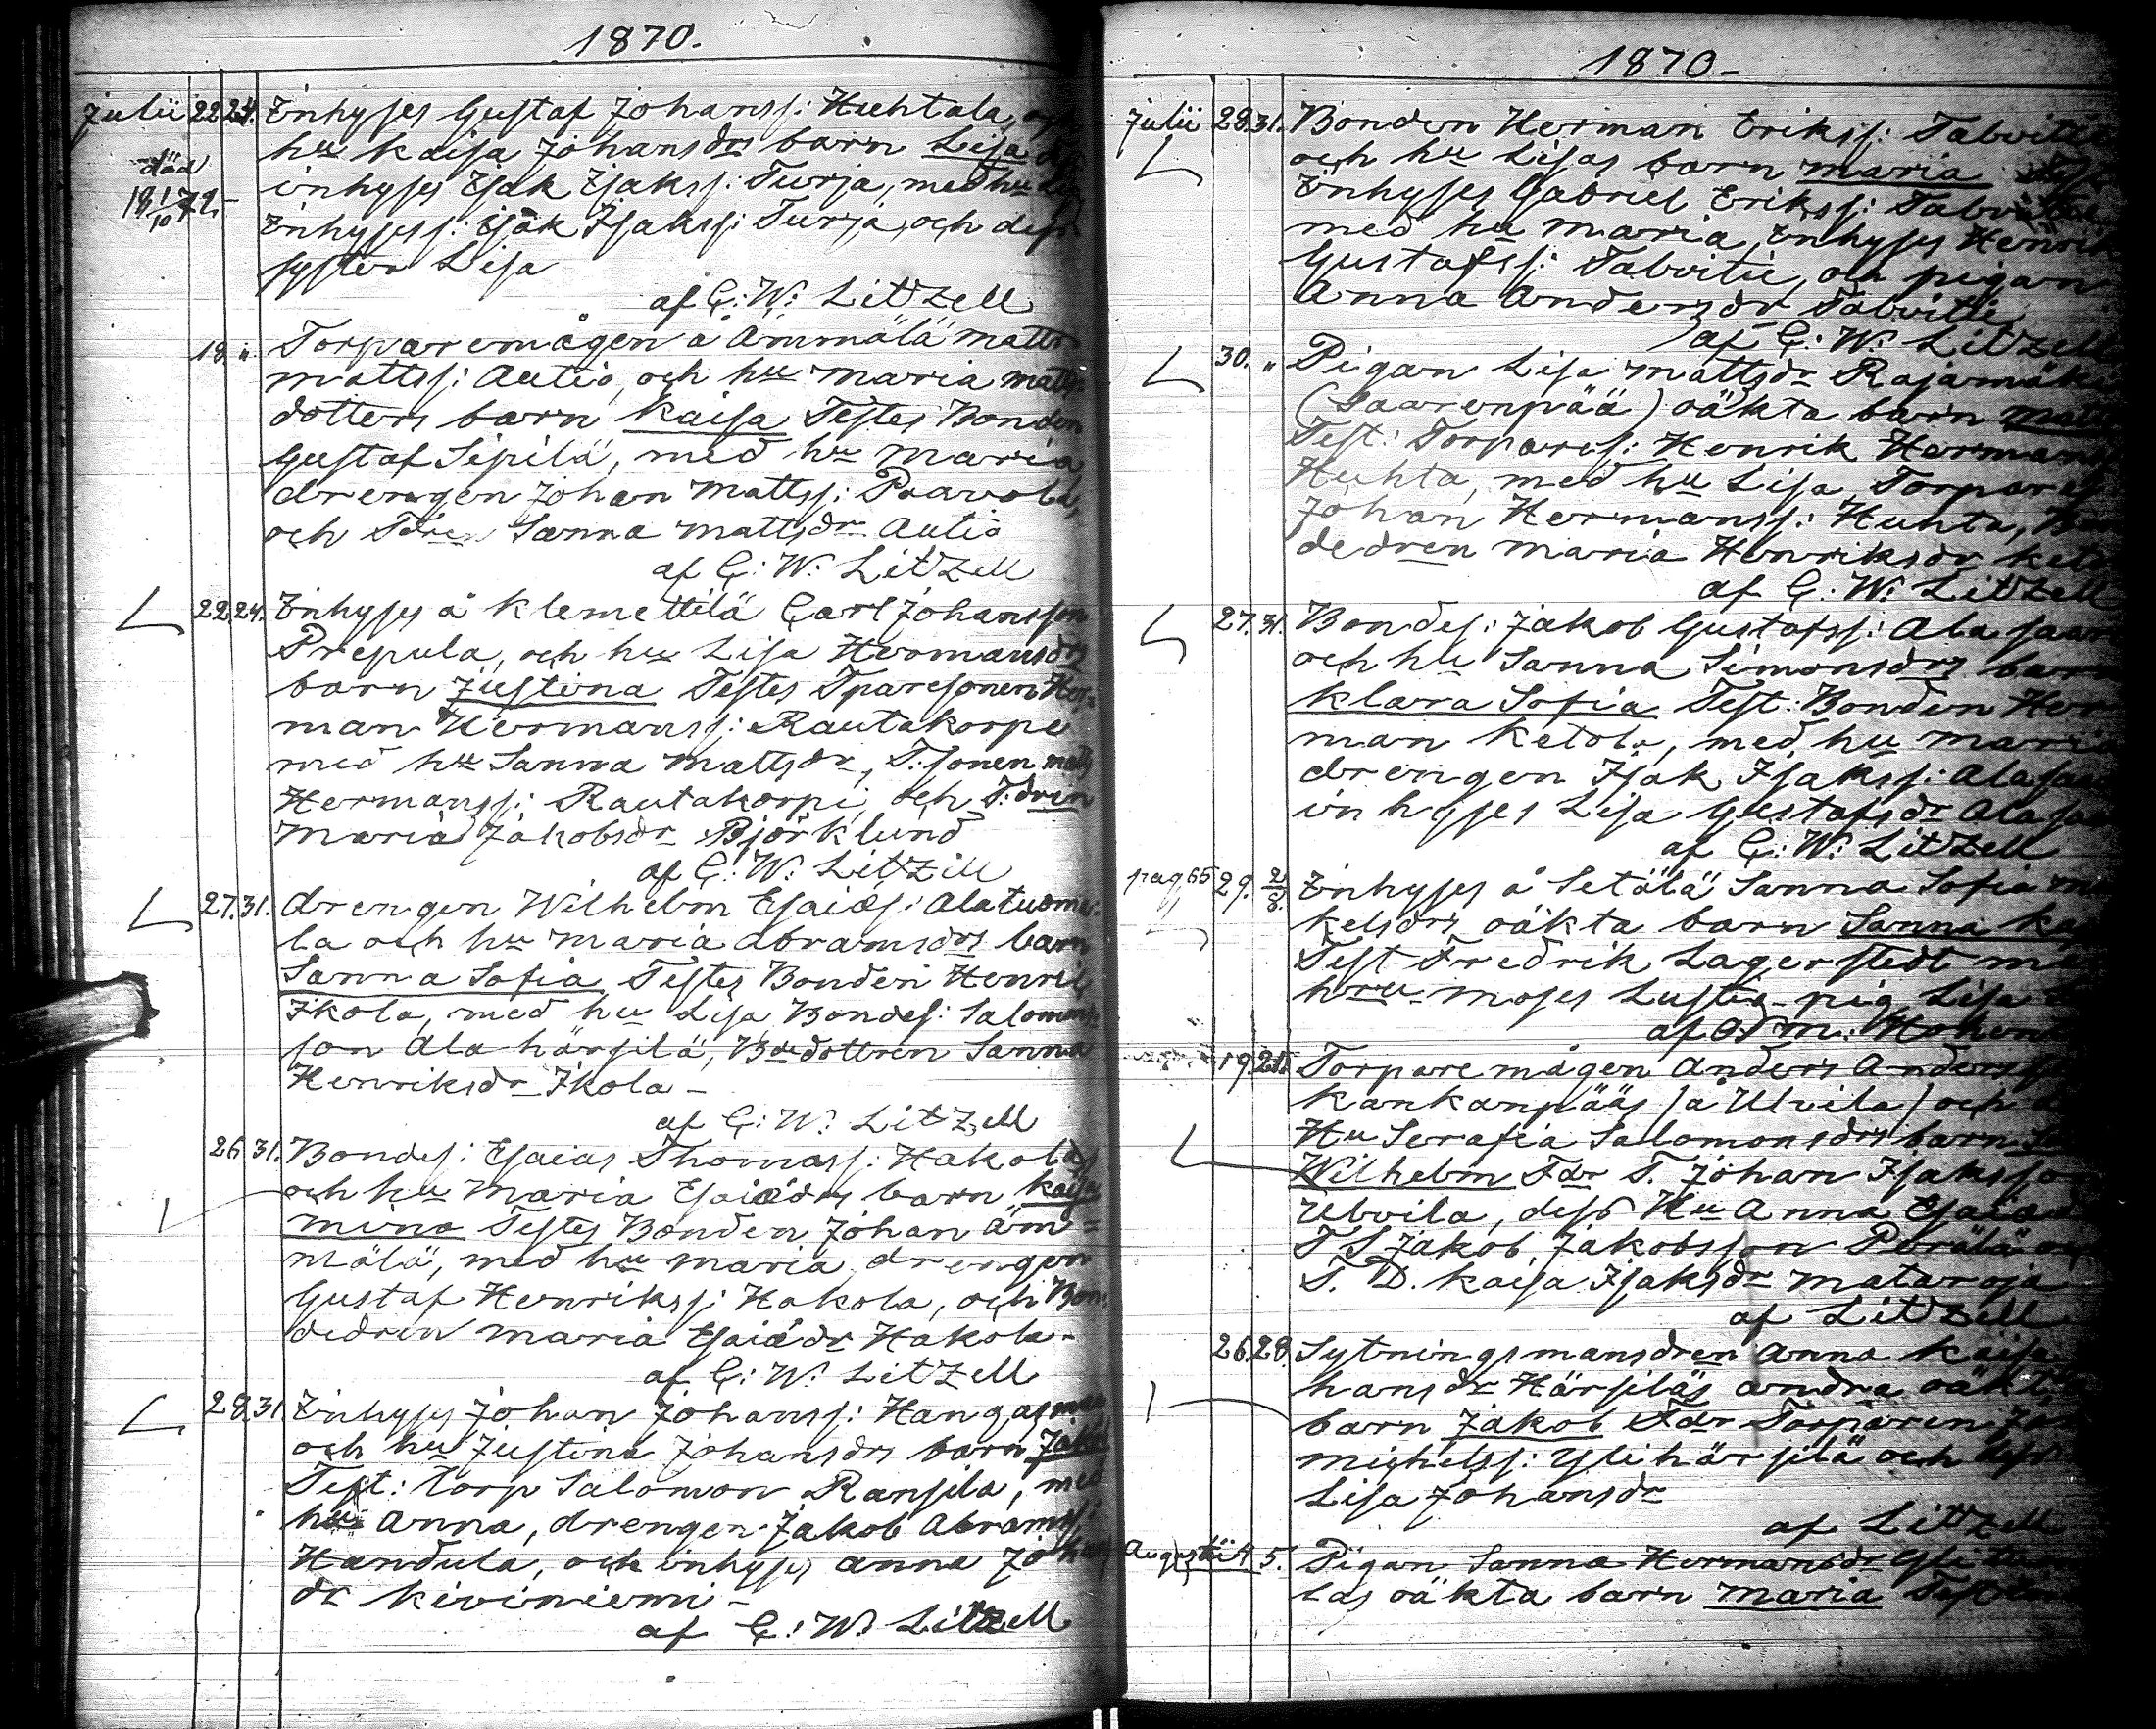 1870.
Julii 22 24. Inhyses Gustaf Johanss: Huhtala, och
hu Kaisa Johansdrs barn Lisa
död
inhyses Isak Isakss: Turja, med hu
18 1/10 72.
Inhysess: Isak Isakss: Turja, och dess
syster Lisa
af C: W: Litzell
18. " Torparemågen å Ämmälä Matts
Mattss: Autio, och hu Maria Matts
dotters barn Kaisa Testes Bonden
Gustaf Sipilä, med hu Maria
drengen Johan Mattss: Paavola,
och Tdren Sanna Mattsdr Autio
af C: W: Litzell
22. 24. Inhyses å Klemettilä Carl Johansson
Prepula, och hu Lisa Hermansdrs
barn Justina Testes Tparesonen Her=
man Hermanss: Rautakorpi
med hu Sanna Mattsdr, T: sonen Matts
Hermanss: Rautakorpi, och T: dren
Maria Jakobsdr Björklund
af C: W: Litzell
27. 31. drengen Wilhelm Esaias: Alatuome=
la och hu Maria Abramsdrs barn
Sanna Sofia Testes Bonden Henrik
Ikola, med hu Lisa Bondes: Salomons
son Ala härsilä, Bdedottren Sanna
Henriksdr Ikola -
af C: W: Litzell
26 31. Bondes: Esaias Thomass: Hakolas
och hu Maria Esaiädrs barn Kaisa
Mina Testes Bonden Johan Äm=
mälä, med hu Maria, drengen
Gustaf Henrikss: Hakola, och Bon=
dedren Maria Esaiädr Hakola -
af C: W: Litzell
28. 31 Inhyses Johan Johanss: Hangasmaa
och hu Justina Johansdrs barn Jakob
Test: torp Salomon Ransila, med
hu Anna, drengen Jakob Abramss:
Handula, och inhyses Anna Johans
dr Kiviniemi -
af C: W: Litzell
1870 -
Julii 28. 31. Bonden Herman Erikss: Talvitie
och hu Lisas barn Maria
Inhyses Gabriel Erikss: Talvitie
med hu Maria, Inhyses Henrik
Gustafss: Talvitie, och pigan
Anna Andersdr Talvitie
af C: W: Litzell
30. " Pigan Lisa Mattsdr Rajamäki
(Saarenpää) oäkta barn
Test: Torpares: Henrik Hermans
Huhta, med hu Lisa Torpares
Johan Hermanss: Huhta, Bon
dedren Maria Henriksdr Keto
af C: W: Litzell
27. 31. Bondes: Jakob Gustafss: Ala saari
och hu Sanna Simonsdrs barn
Klara Sofia Test: Bonden Her
man Ketola, med hu Maria
drengen Isak Isakss: Alasaa
inhyses Lisa Gustafsdr Alasaa
af C: W: Litzell
pag 65 29. 2/8. Inhyses å Setälä Sanna Sofia Mi
kelsdrs oäkta barn Sanna
Test Fredrik Lagerstedt
hru Moses Lustig pig Lisa
af
19. 20. Torparemågen Anders Anders
Kankanpääs (å Ulvila) och
Hu Serafia Salomonsdrs barn
Wilhelm Fdr T. Johan Isaksson
Ulvila, dess Hu Anna Esaiä
T S Jakob Jakobsson Perälä
T. D. Kaisa Isaksdr Mataroja
af Litzell
26. 28. Sytningsmansdren Anna Kaisa
hansdr Härsiläs andra oäkta
barn Jakob Fdr Torparen
Michelss: Yli härsilä och dess
Lisa Johansdr
af Litzell
Augusti 4 5. Pigan Sanna Hermansdr
las oäkta barn Maria